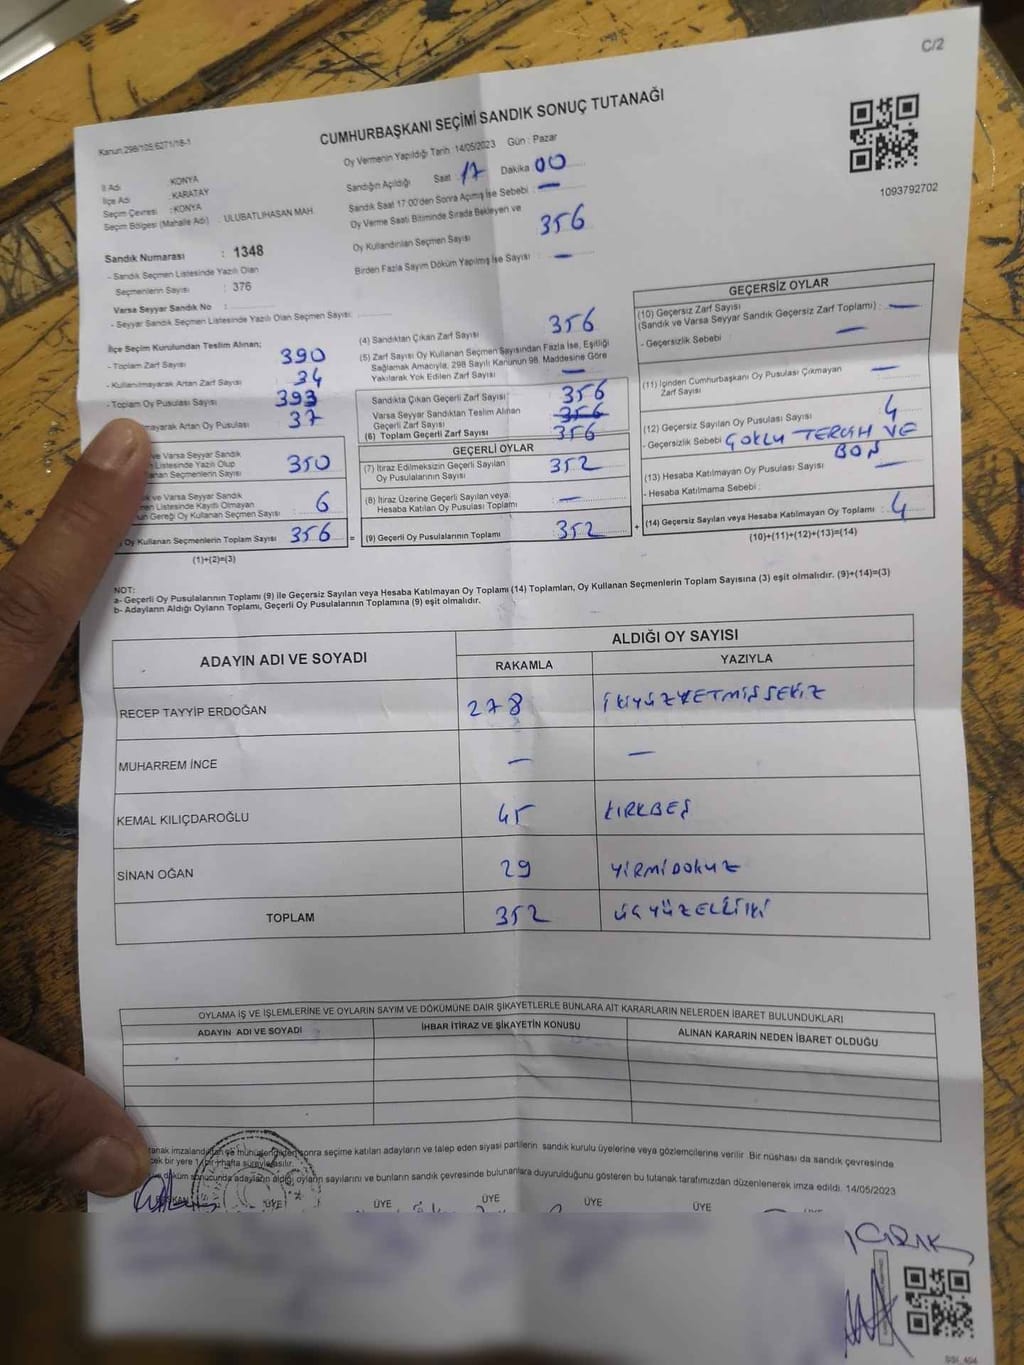 C/2
Kanun:298/105,6271/18-1
CUMHURBAŞKANI SEÇİMİ SANDIK SONUÇ TUTANAĞI
Oy Vermenin Yapıldığı Tarih :14/05/2023 Gün : Pazar
1093792702
İl Adı : KONYA
İlçe Adı : KARATAY
Seçim Çevresi : KONYA
Seçim Bölgesi (Mahalle Adı) : ULUBATLIHASAN MAH.
Sandık Numarası : 1348
- Sandık Seçmen Listesinde Yazılı Olan
Seçmenlerin Sayısı : 376
Varsa Seyyar Sandık No :
- Seyyar Sandık Seçmen Listesinde Yazılı Olan Seçmen Sayısı:
Sandığın Açıldığı Saat 17 Dakika 00
Sandık Saat 17:00'den Sonra Açımış İse Sebebi : —
Oy Verme Saati Bitiminde Sırada Bekleyen ve
Oy Kullandırılan Seçmen Sayısı 356
Birden Fazla Sayım Döküm Yapılmış İse Sayısı : —
İlçe Seçim Kurulundan Teslim Alınan;
- Toplam Zarf Sayısı 390
- Kullanılmayarak Artan Zarf Sayısı 34
- Toplam Oy Pusulası Sayısı 393
mayarak Artan Oy Pusulası 37
ve Varsa Seyyar Sandık
Listesinde Yazılı Olup
anan Seçmenlerin Sayısı 350
k ve Varsa Seyyar Sandık
men Listesinde Kayıtlı Olmayan
un Gereği Oy Kullanan Seçmen Sayısı 6
Oy Kullanan Seçmenlerin Toplam Sayısı 356 =
(1)+(2)=(3)
(4) Sandıktan Çıkan Zarf Sayısı 356
(5) Zarf Sayısı Oy Kullanan Seçmen Sayısından Fazla İse, Eşitliği
Sağlamak Amacıyla, 298 Sayılı Kanunun 98. Maddesine Göre
Yakılarak Yok Edilen Zarf Sayısı —
Sandıkta Çıkan Geçerli Zarf Sayısı 356
Varsa Seyyar Sandıktan Teslim Alınan
Geçerli Zarf Sayısı 356
(6) Toplam Geçerli Zarf Sayısı 356
GEÇERLİ OYLAR
(7) İtiraz Edilmeksizin Geçerli Sayılan
Oy Pusulalarının Sayısı 352
(8) İtiraz Üzerine Geçerli Sayılan veya
Hesaba Katılan Oy Pusulası Toplamı —
(9) Geçerli Oy Pusulalarının Toplamı 352 +
GEÇERSİZ OYLAR
(10) Geçersiz Zarf Sayısı
(Sandık ve Varsa Seyyar Sandık Geçersiz Zarf Toplamı) : —
- Geçersizlik Sebebi —
(11) İçinden Cumhurbaşkanı Oy Pusulası Çıkmayan
Zarf Sayısı —
(12) Geçersiz Sayılan Oy Pusulası Sayısı 4
- Geçersizlik Sebebi ÇOKLU TERCİH VE
BOŞ
(13) Hesaba Katılmayan Oy Pusulası Sayısı —
- Hesaba Katılmama Sebebi :
(14) Geçersiz Sayılan veya Hesaba Katılmayan Oy Toplamı : 4
(10)+(11)+(12)+(13)=(14)
NOT:
a- Geçerli Oy Pusulalarının Toplamı (9) ile Geçersiz Sayılan veya Hesaba Katılmayan Oy Toplamı (14) Toplamları, Oy Kullanan Seçmenlerin Toplam Sayısına (3) eşit olmalıdır. (9)+(14)=(3)
b- Adayların Aldığı Oyların Toplamı, Geçerli Oy Pusulalarının Toplamına (9) eşit olmalıdır.
ADAYIN ADI VE SOYADI ALDIĞI OY SAYISI
RAKAMLA YAZIYLA
RECEP TAYYİP ERDOĞAN 278 İKİYÜZYETMİŞSEKİZ
MUHARREM İNCE — —
KEMAL KILIÇDAROĞLU 45 KIRKBEŞ
SİNAN OĞAN 29 YİRMİDOKUZ
TOPLAM 352 ÜÇYÜZELLİİKİ
OYLAMA İŞ VE İŞLEMLERİNE VE OYLARIN SAYIM VE DÖKÜMÜNE DAİR ŞİKAYETLERLE BUNLARA AİT KARARLARIN NELERDEN İBARET BULUNDUKLARI
ADAYIN ADI VE SOYADI İHBAR İTİRAZ VE ŞİKAYETİN KONUSU ALINAN KARARIN NEDEN İBARET OLDUĞU
tanak imzalandıktan ve mühürlendikten sonra seçime katılan adayların ve talep eden siyasi partilerin sandık kurulu üyelerine veya gözlemcilerine verilir. Bir nüshası da sandık çevresinde
cek bir yere 1 bir hafta süreyle asılır.
döküm sonucunda adayların aldığı oyların sayılarını ve bunların sandık çevresinde bulunanlara duyurulduğunu gösteren bu tutanak tarafımızdan düzenlenerek imza edildi. 14/05/2023
BAŞKAN ÜYE ÜYE ÜYE ÜYE ÜYE